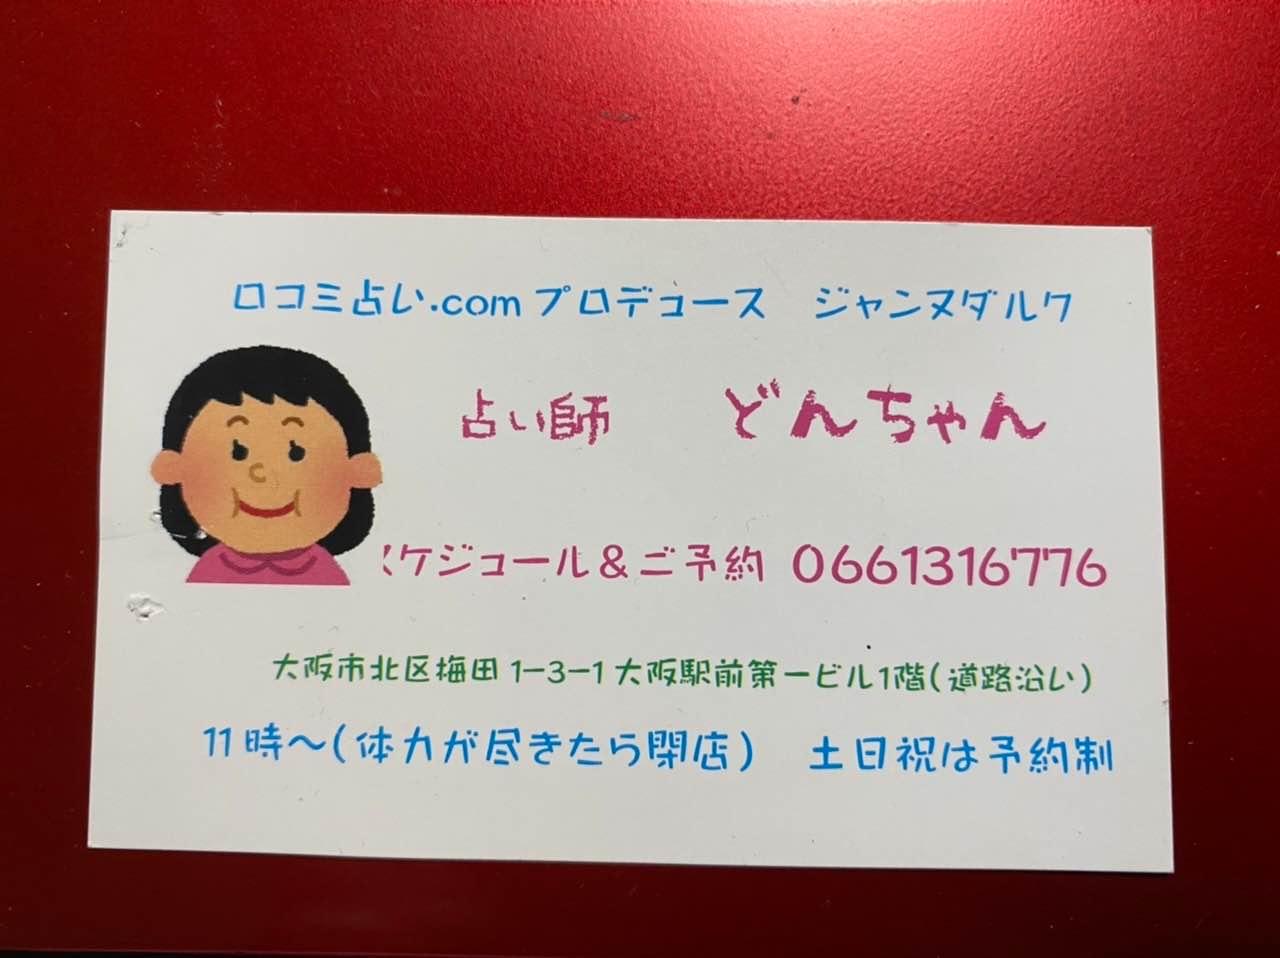 口コミ占い.comプロデュース　ジャンヌダルク
占い師　どんちゃん
スケジュール＆ご予約 0661316776
大阪市北区梅田1-3-1大阪駅前第一ビル1階(道路沿い)
11時〜(体力が尽きたら閉店)　土日祝は予約制